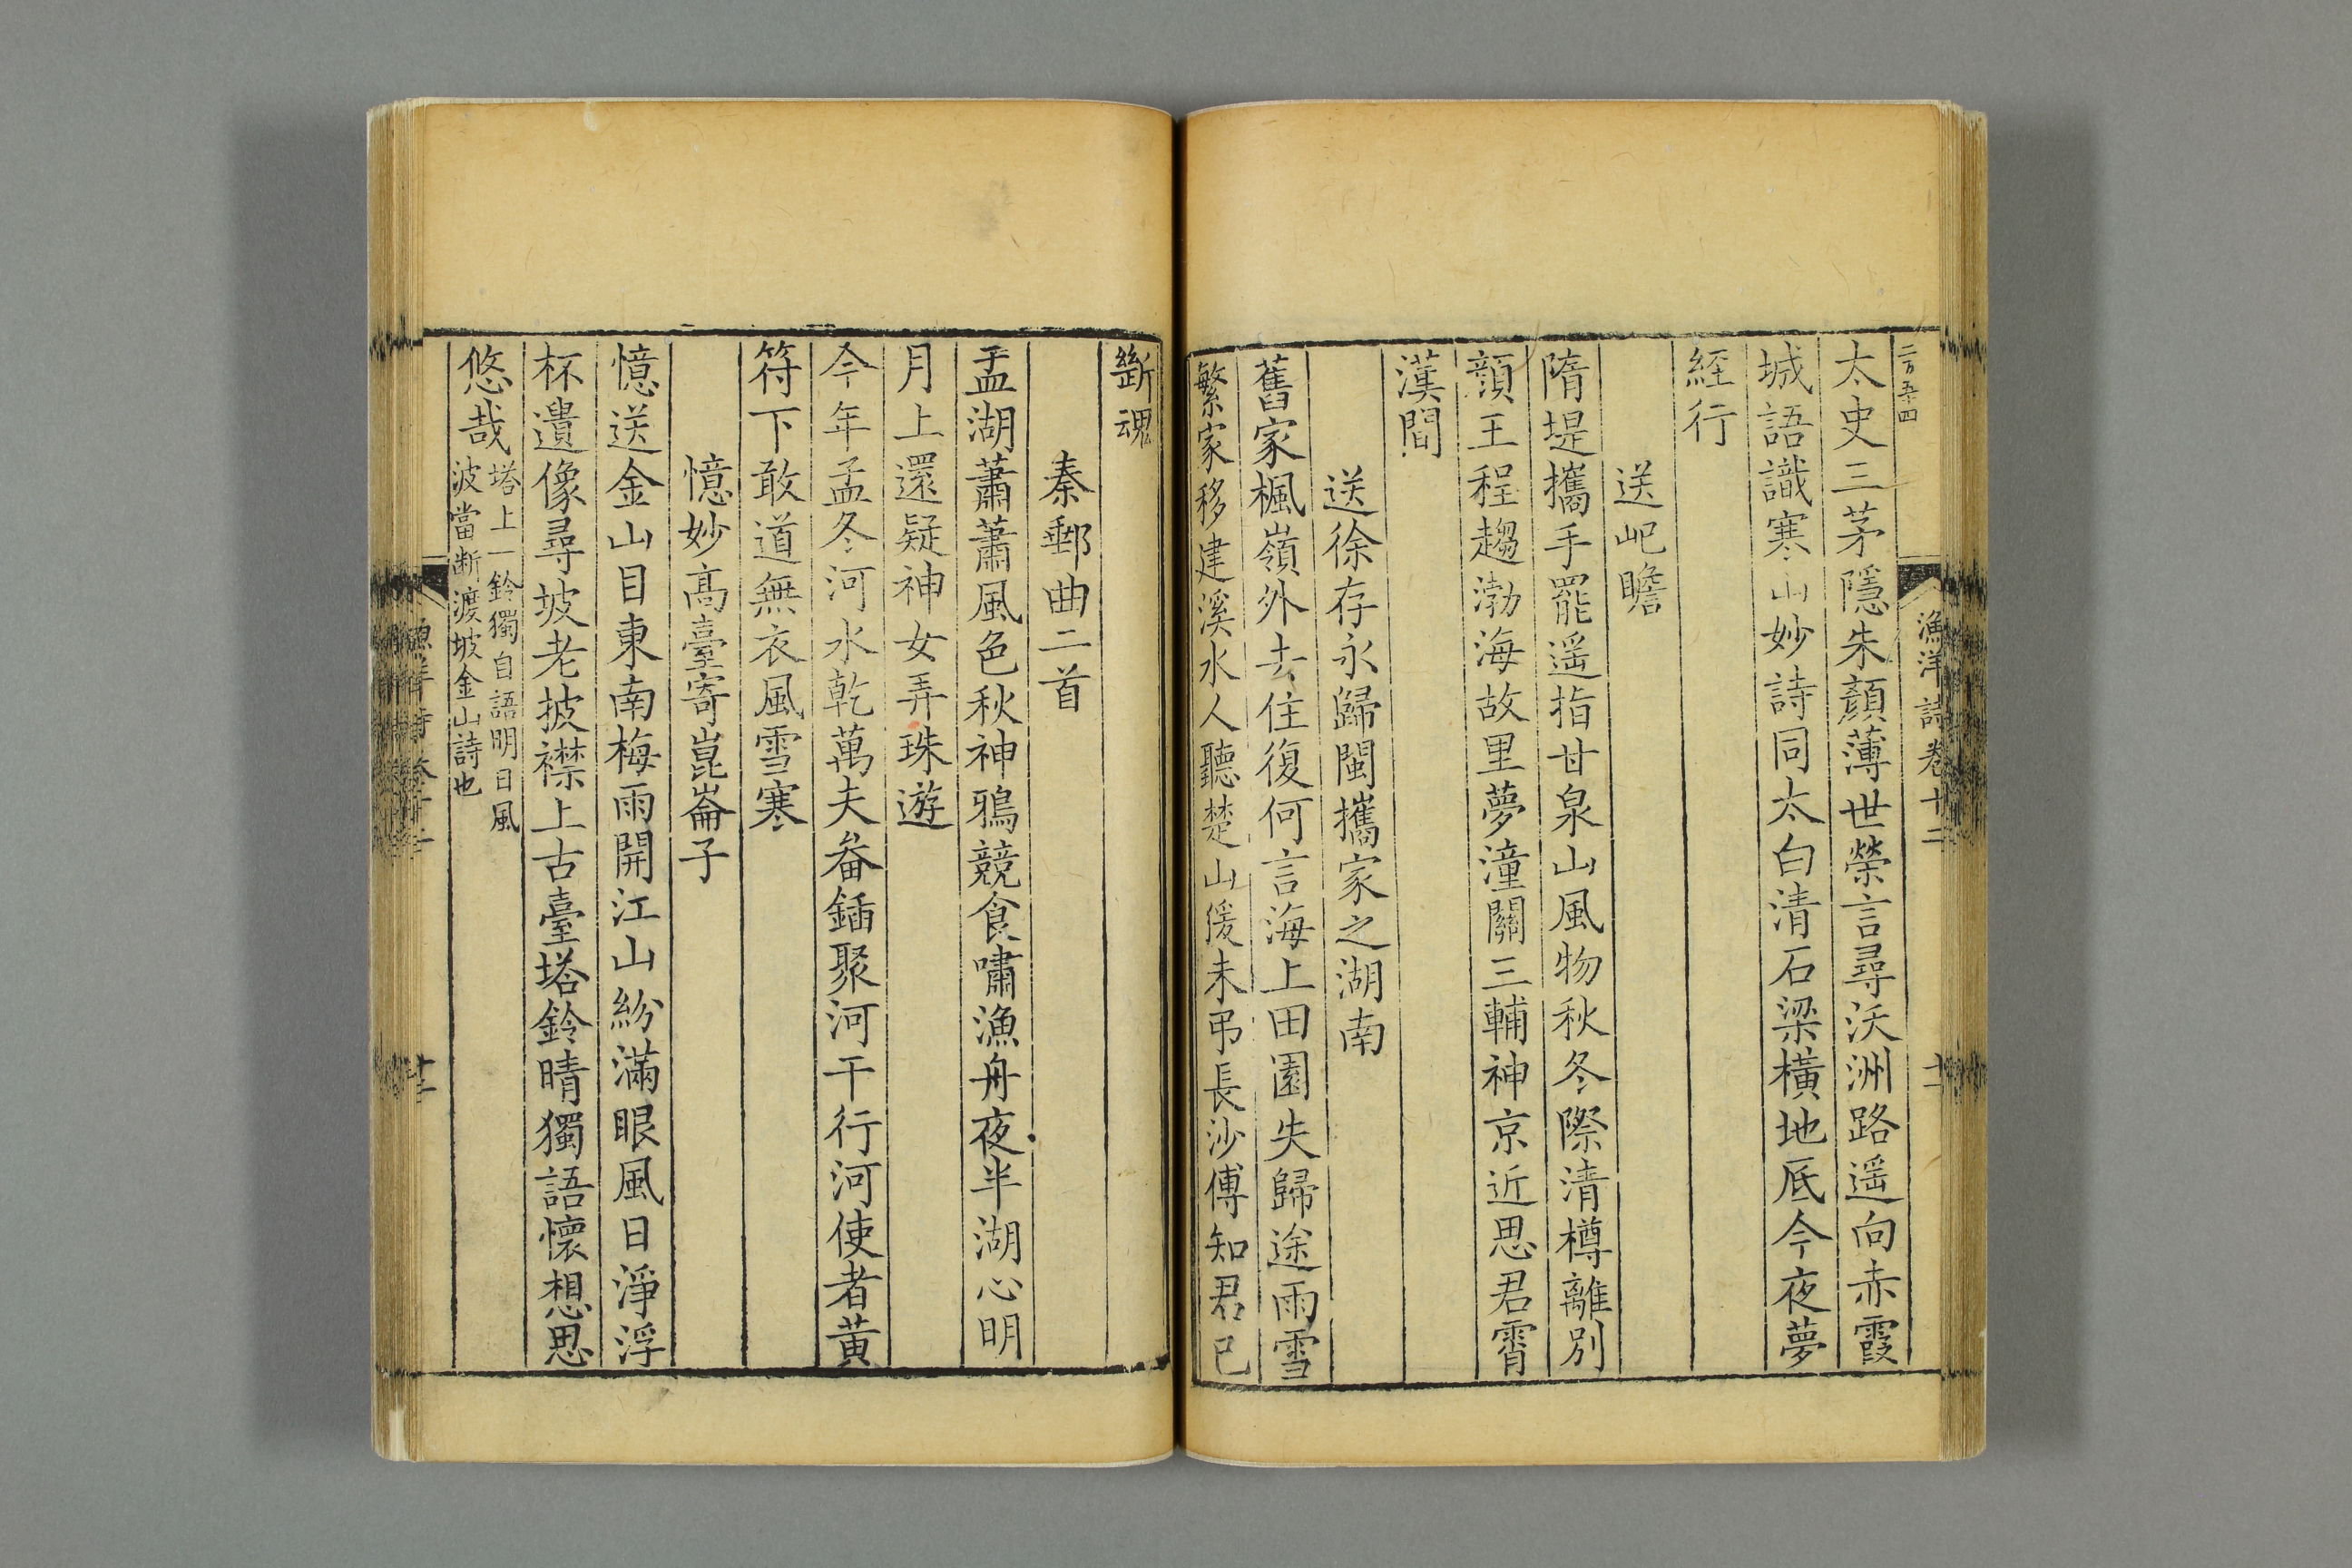 二百五十四
漁洋詩卷十二
十二
太史三茅隱朱顏薄世榮言尋沃洲路遥向赤霞
城語識寒山妙詩同太白清石梁橫地底今夜夢
經行
送屺瞻
隋堤攜手罷遥指甘泉山風物秋冬際清樽離別
顏王程趨渤海故里夢潼關三輔神京近思君霄
漢間
送徐存永歸閩攜家之湖南
舊家楓嶺外去住復何言海上田園失歸途雨雪
繁家移建溪水人聽楚山猨未弔長沙傅知君已
斷魂
秦郵曲二首
孟湖蕭蕭風色秋神鴉競食嘯漁舟夜半湖心明
月上還疑神女弄珠遊
今年孟冬河水乾萬夫畚鍤聚河干行河使者黃
符下敢道無衣風雪寒
憶妙高臺寄崑崙子
憶送金山目東南梅雨開江山紛滿眼風日淨浮
杯遺像尋坡老披襟上古臺塔鈴晴獨語懷想思
悠哉塔上一鈴獨自語明日風
波當斷渡坡金山詩也
漁洋詩卷十二
十三